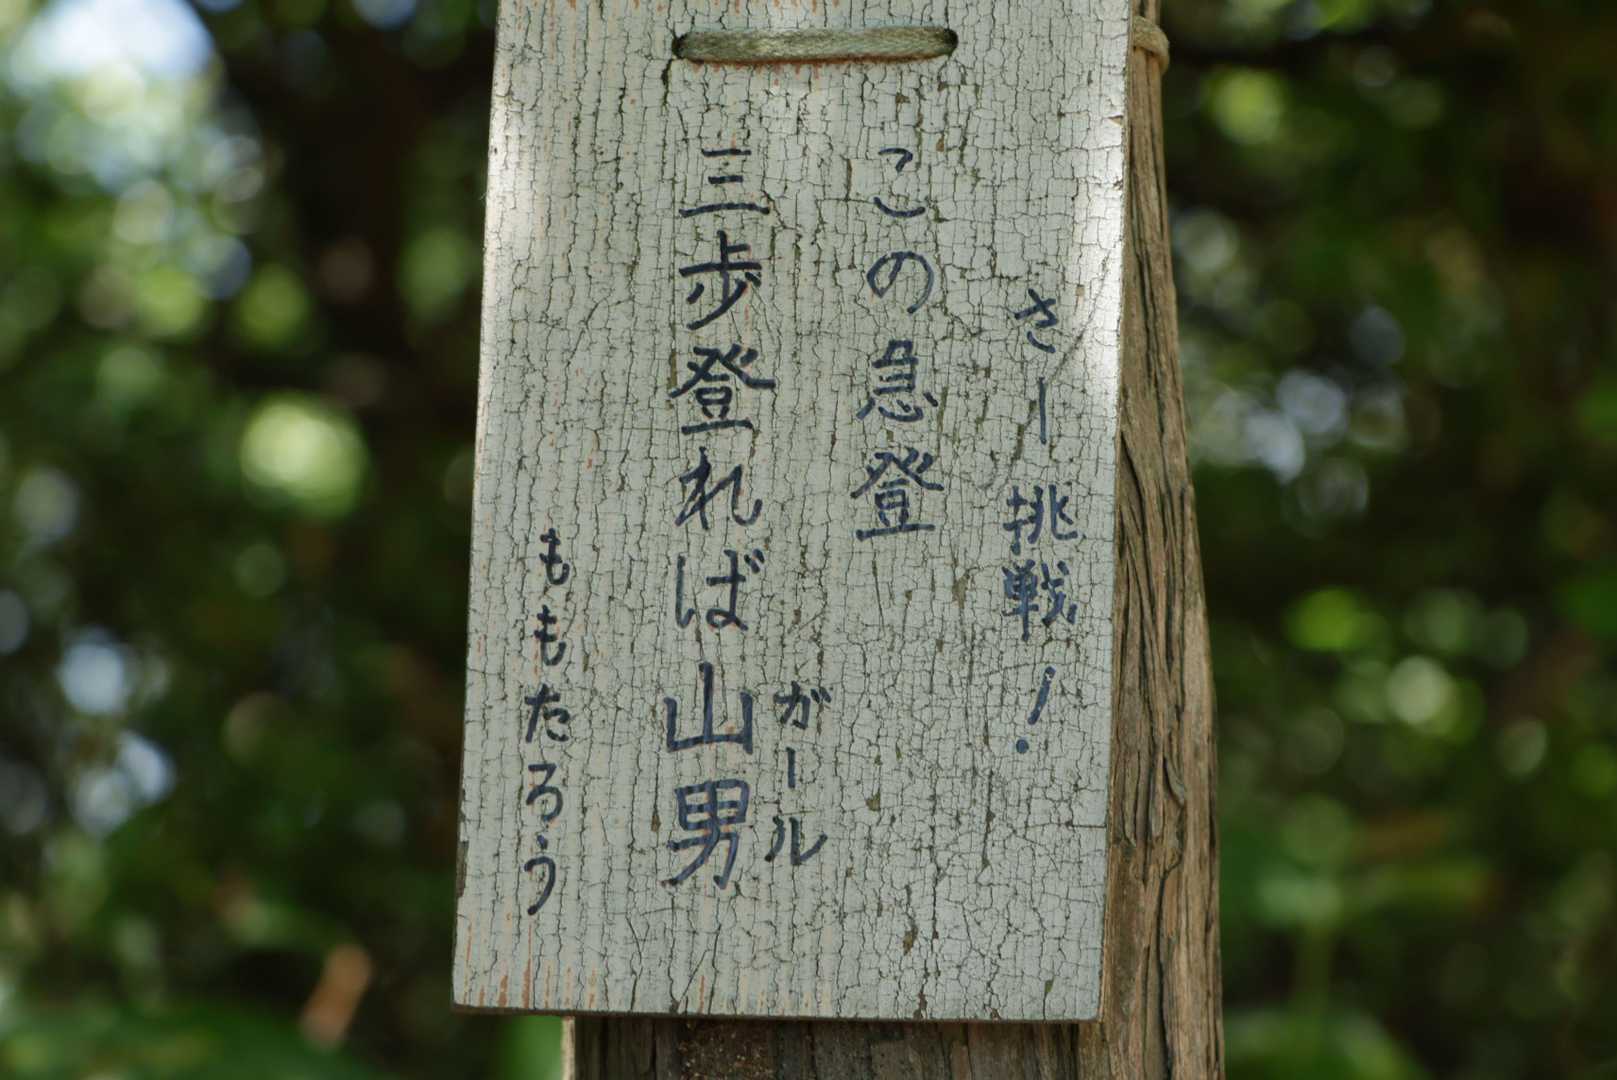 さー挑戦!
この急登
三歩登れば山男
ガール
ももたろう